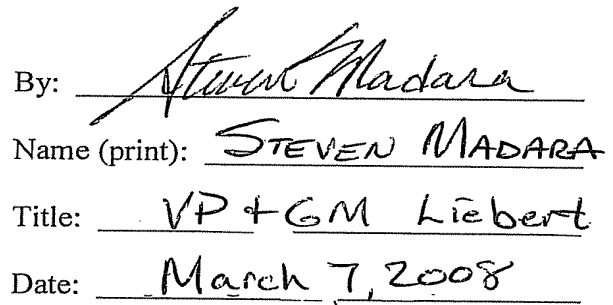 By: Steven Madara
Name (print): STEVEN MADARA
Title: VP + GM Liebert
Date: March 7, 2008